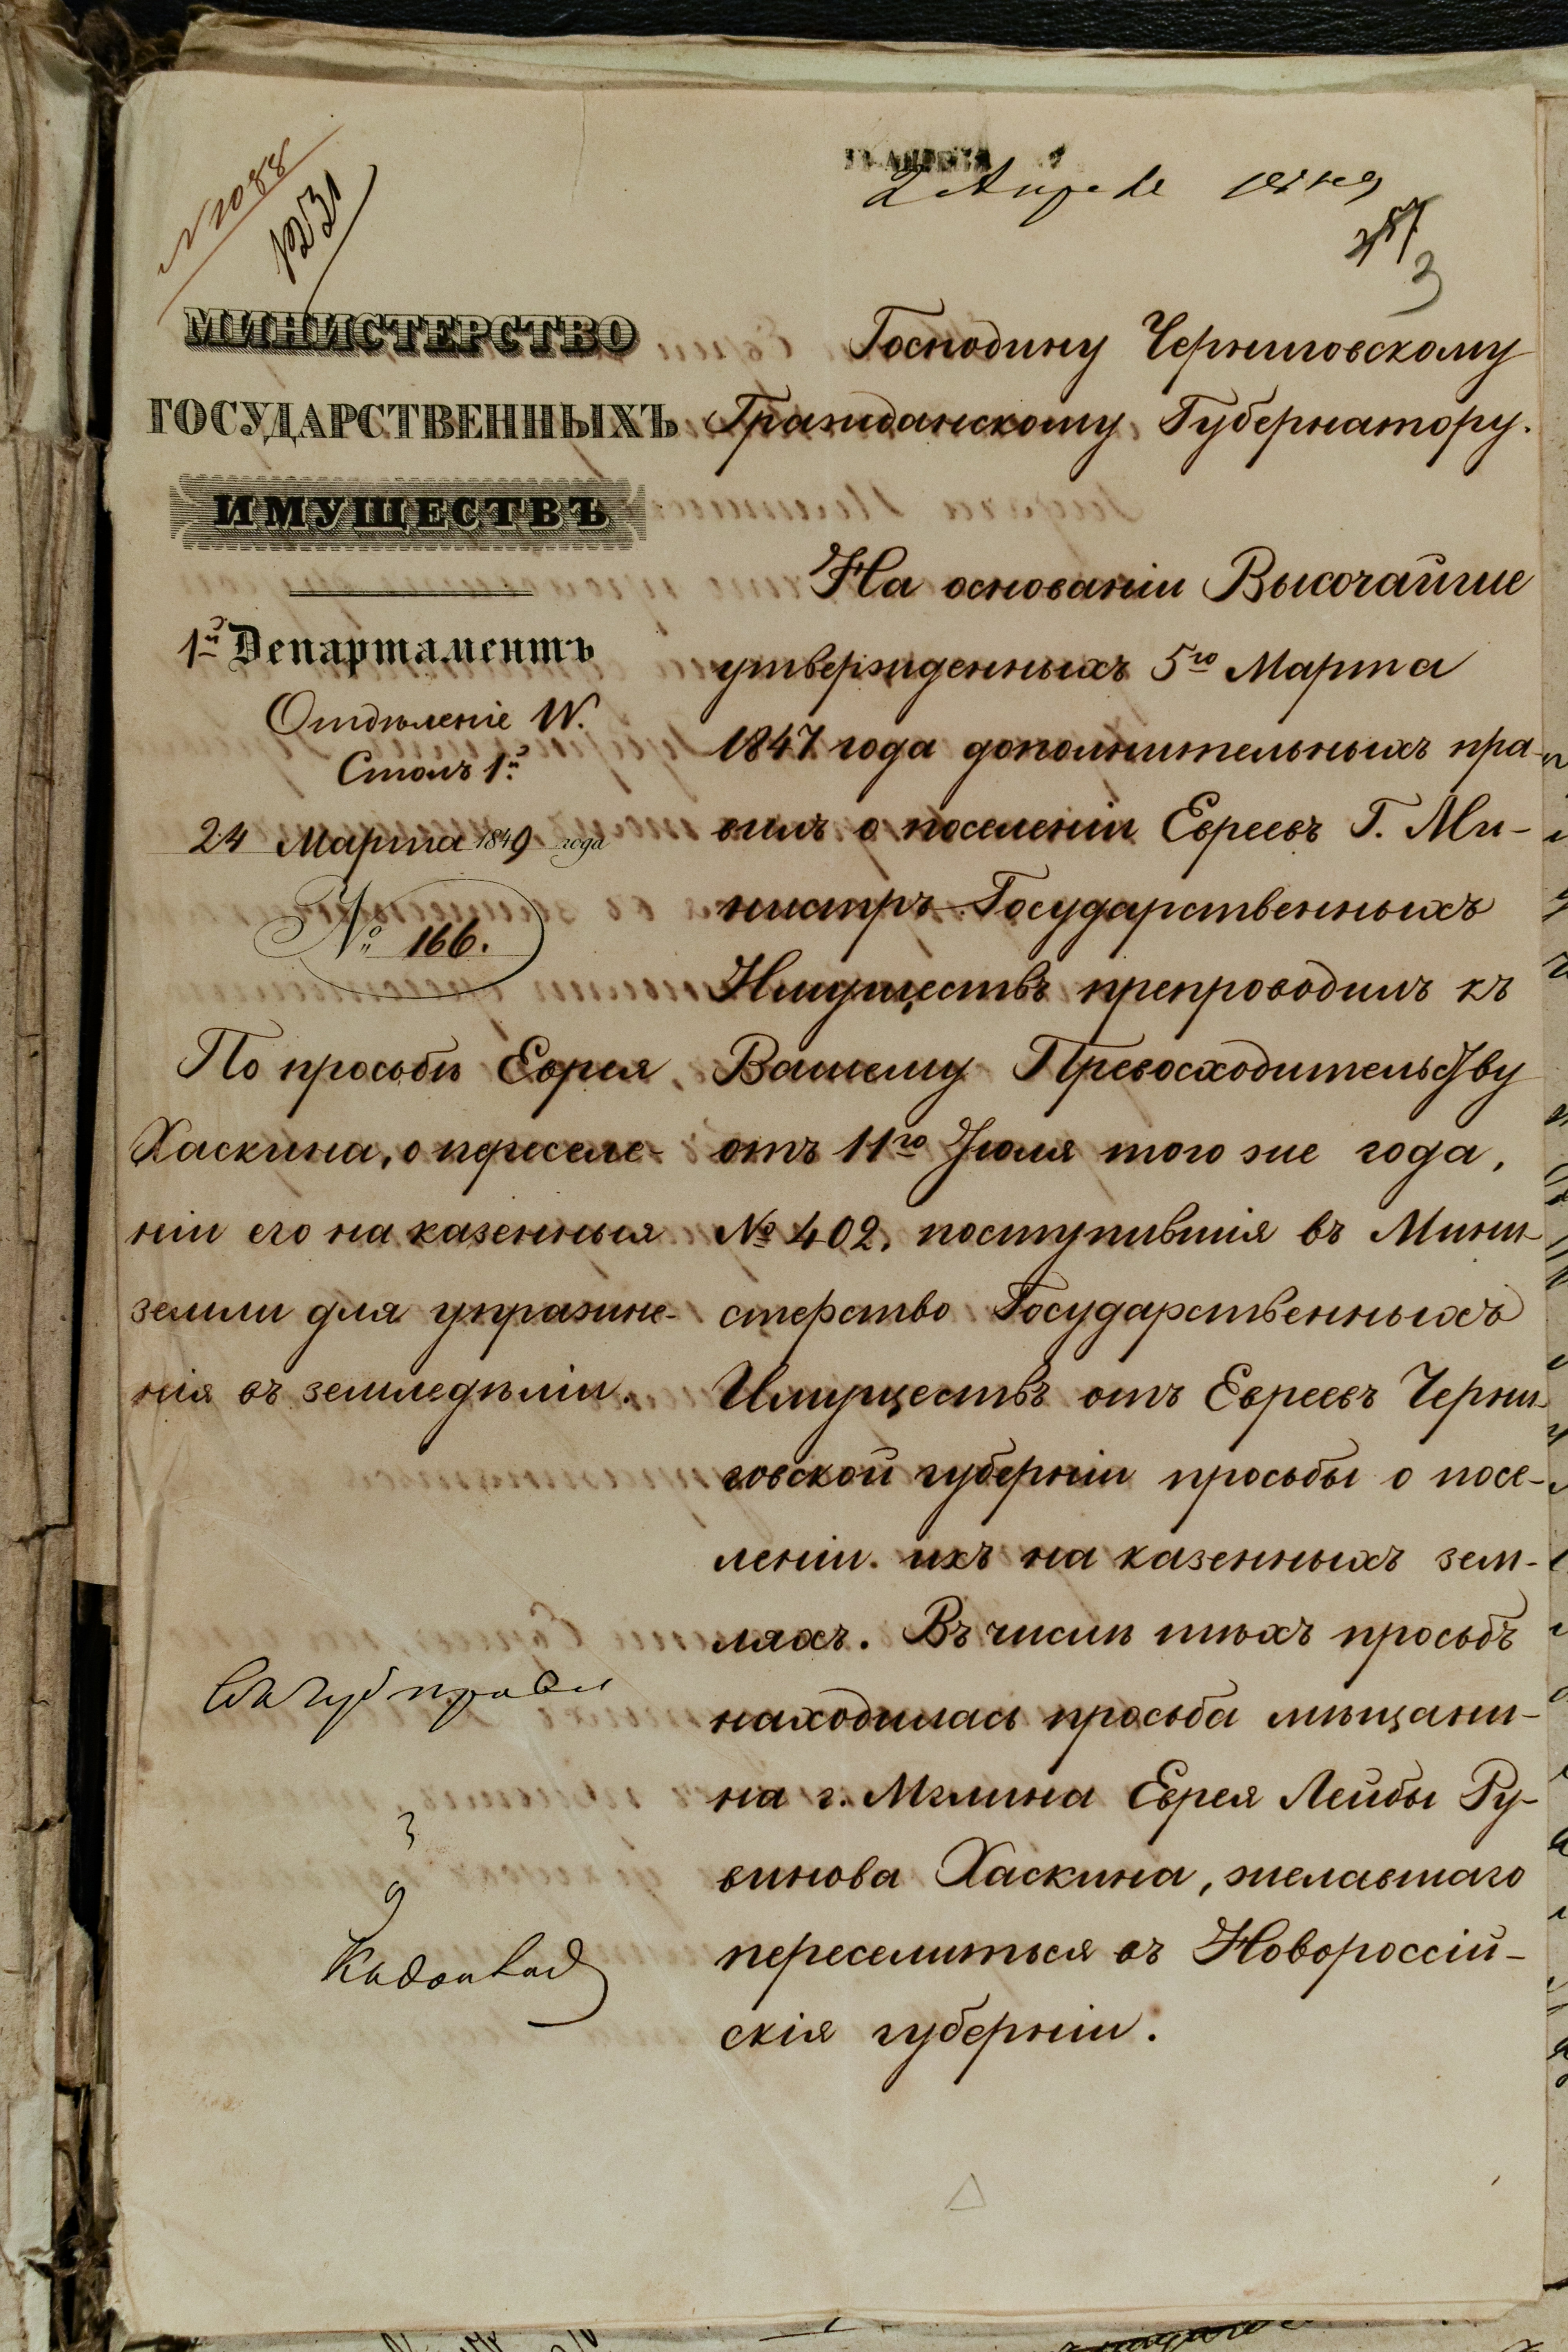 N 2088
1231
2 Апреля
МИНИСТЕРСТВО
ГОСУДАРСТВЕННЫХЪ
ИМУЩЕСТВЪ
1й Департаментъ
Отдѣленіе IV.
Столъ 1й
24 Марта 1849 года
№ 166.
По просьбѣ Еврея
Хаскина, о переселе-
ніи его на казенныя
земли для упражне-
нія въ земледѣліи.
Господину Черниговскому
Гражданскому Губернатору.
На основаніи Высочайше
утвержденныхъ 5го Марта
1847 года дополнительныхъ пра-
вилъ о поселеніи Евреевъ Г. Ми-
нистръ Государственныхъ
Имуществъ препроводилъ къ
Вашему Превосходительству
отъ 11го Іюля того же года,
№ 402, поступившія въ Мини-
стерство Государственныхъ
Имуществъ отъ Евреевъ Черни-
говской губерніи просьбы о посе-
леніи ихъ на казенныхъ зем-
ляхъ. Въ числѣ тѣхъ просьбъ
находилась просьба мѣщани-
на г. Мглина Еврея Лейбы Ру-
винова Хаскина, желавшаго
переселиться въ Новороссій-
скія губерніи.